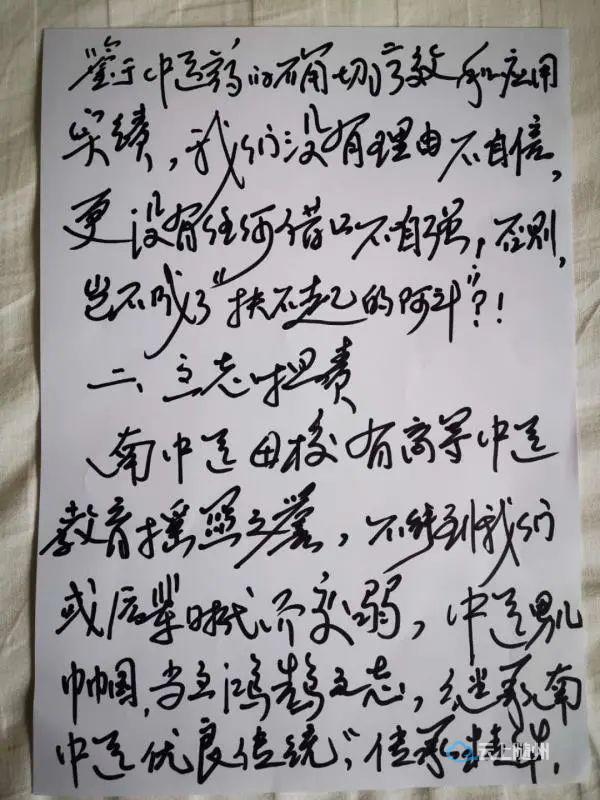 鉴于中医药的确切疗效和应用
实绩，我们没有理由不自信，
更没有任何借口不自强，否则，
岂不成了“扶不起的阿斗”？！
二、立志担责
南中医母校有高等中医
教育摇篮之誉，不能到我们
或后辈时代价变弱，中医男儿
巾帼，当立鸿鹄之志，继承南
中医优良传统，传承精华，
云上随州